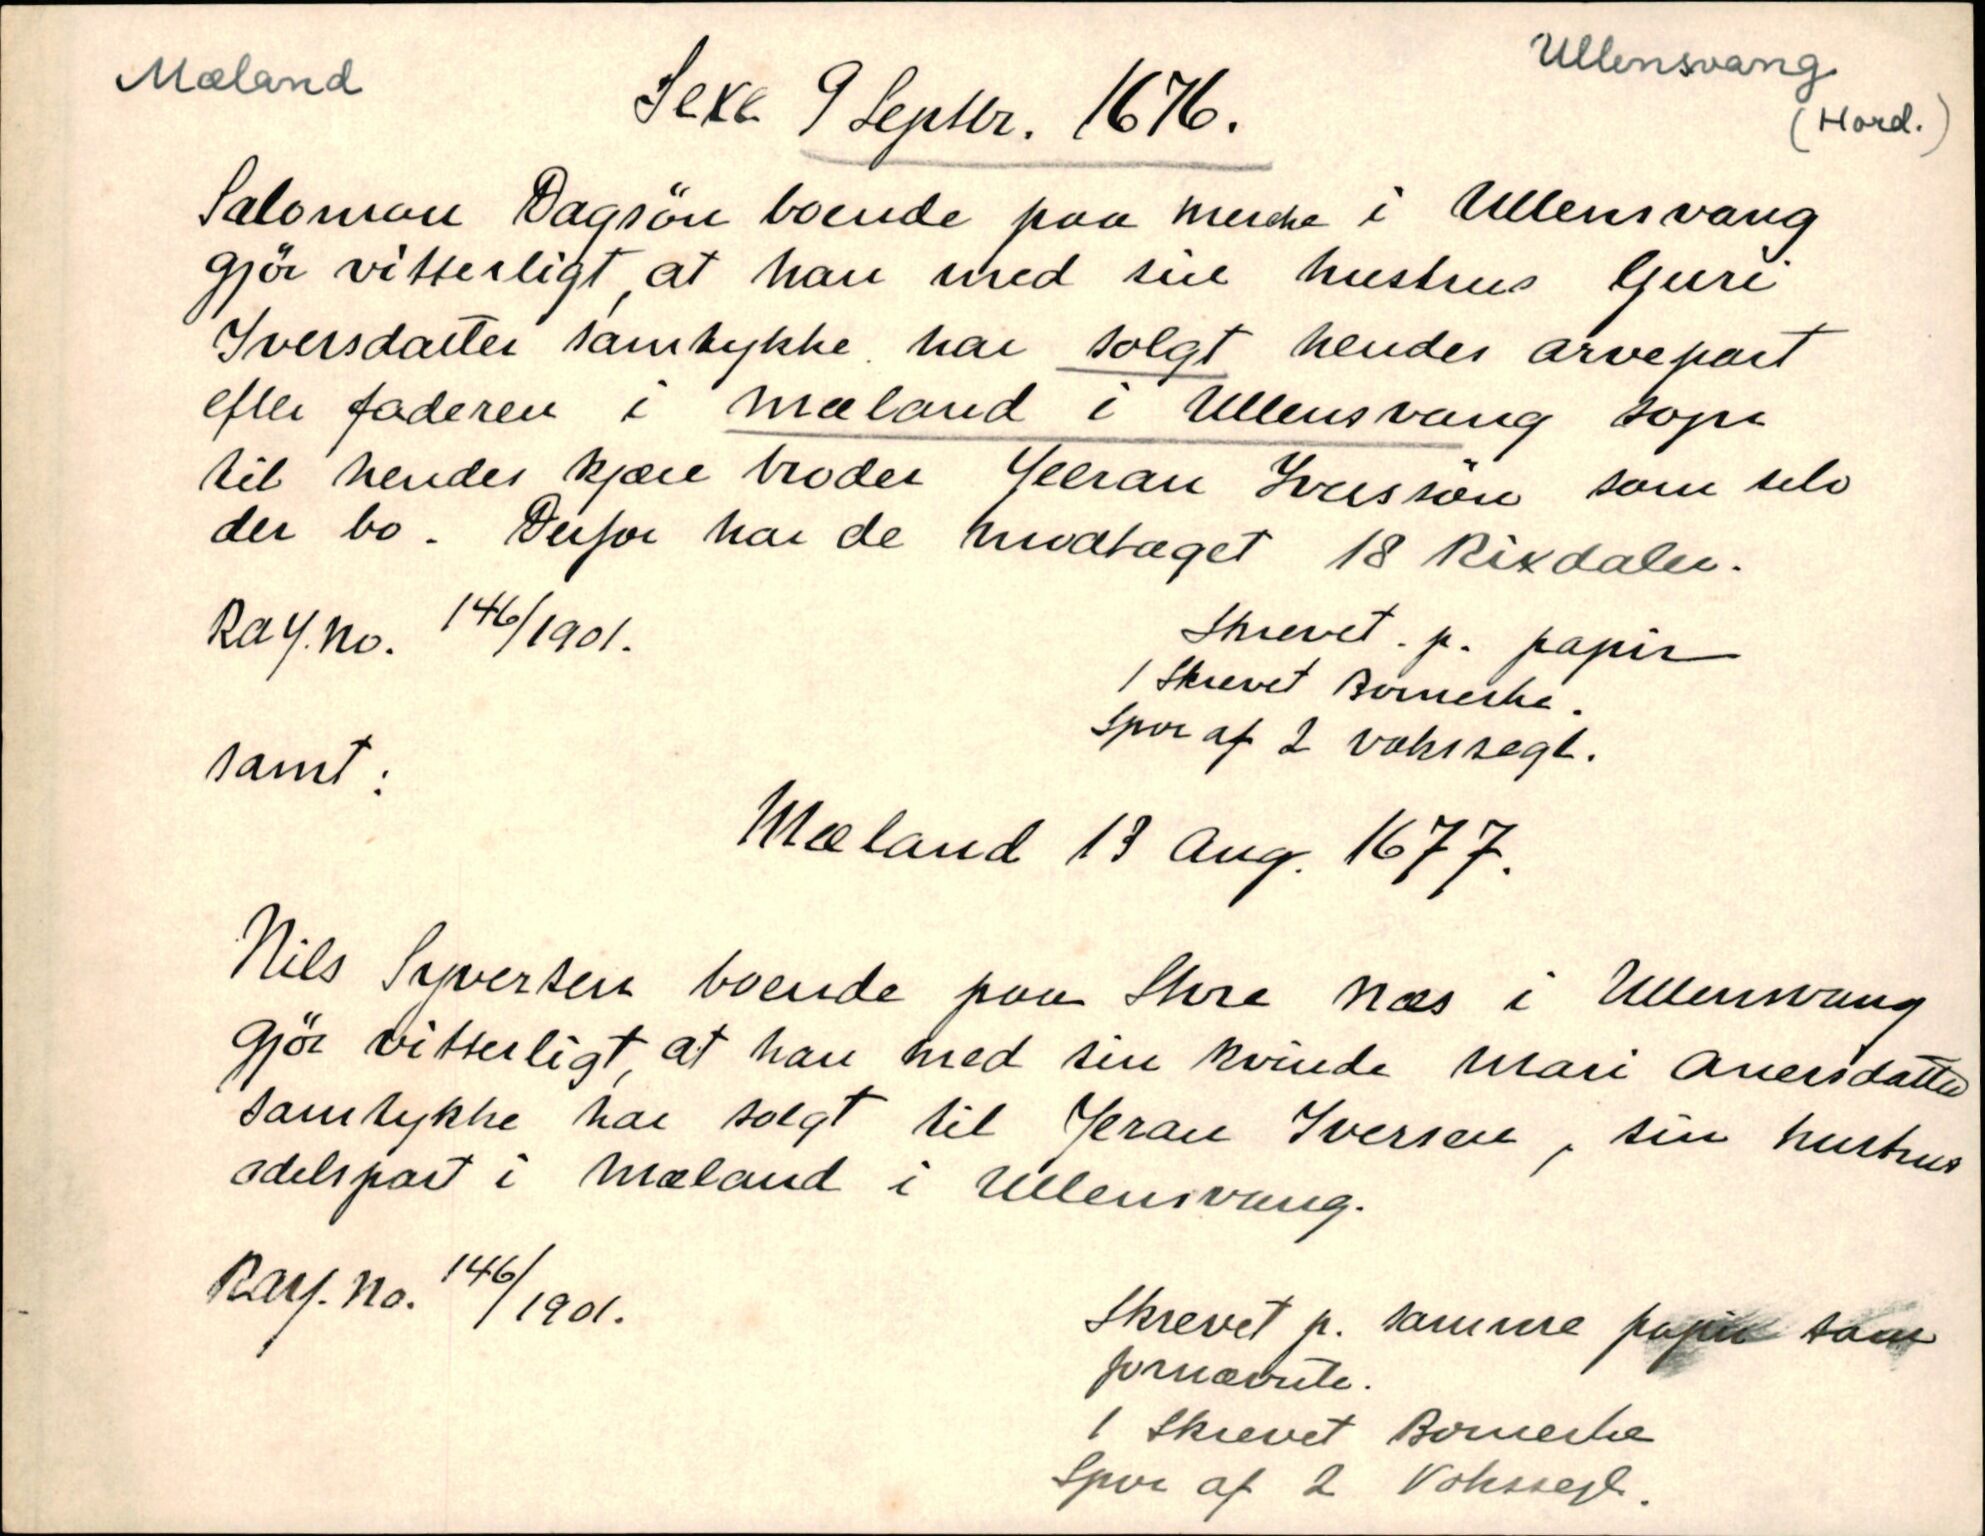 Mæland
Ullensvang
(Hord.)
Sexe 9 Septbr. 1676.
Salomon Dagsön boende paa Merche i Ullensvang
gjör vitterligt, at han med sin hustrus Guri
Iversdatter samtykke har solgt hendes arvepart
efter faderen i Mæland i Ullensvang sogn
til hendes kjære broder Jeeran Iverssön som selv
der bo. Derfor har de modtaget 18 Rixdaler.
Ray. No. 146/1901.
Skrevet p. papir
1 Skrevet Bomerke.
Spor af 2 vokssegl.
samt:
Mæland 13 Aug. 1677.
Nils Syversen boende paa Store Næs i Ullensvang
gjör vitterligt, at han med sin kvinde Mari Anersdatter
samtykke har solgt til Jeran Iversen, sin hustrus
odelspart i Mæland i Ullensvang.
Ray. No. 146/1901.
Skrevet p. samme papir som
fornævnte.
1 Skrevet Bomerke
Spor af 2 Vokssegl.